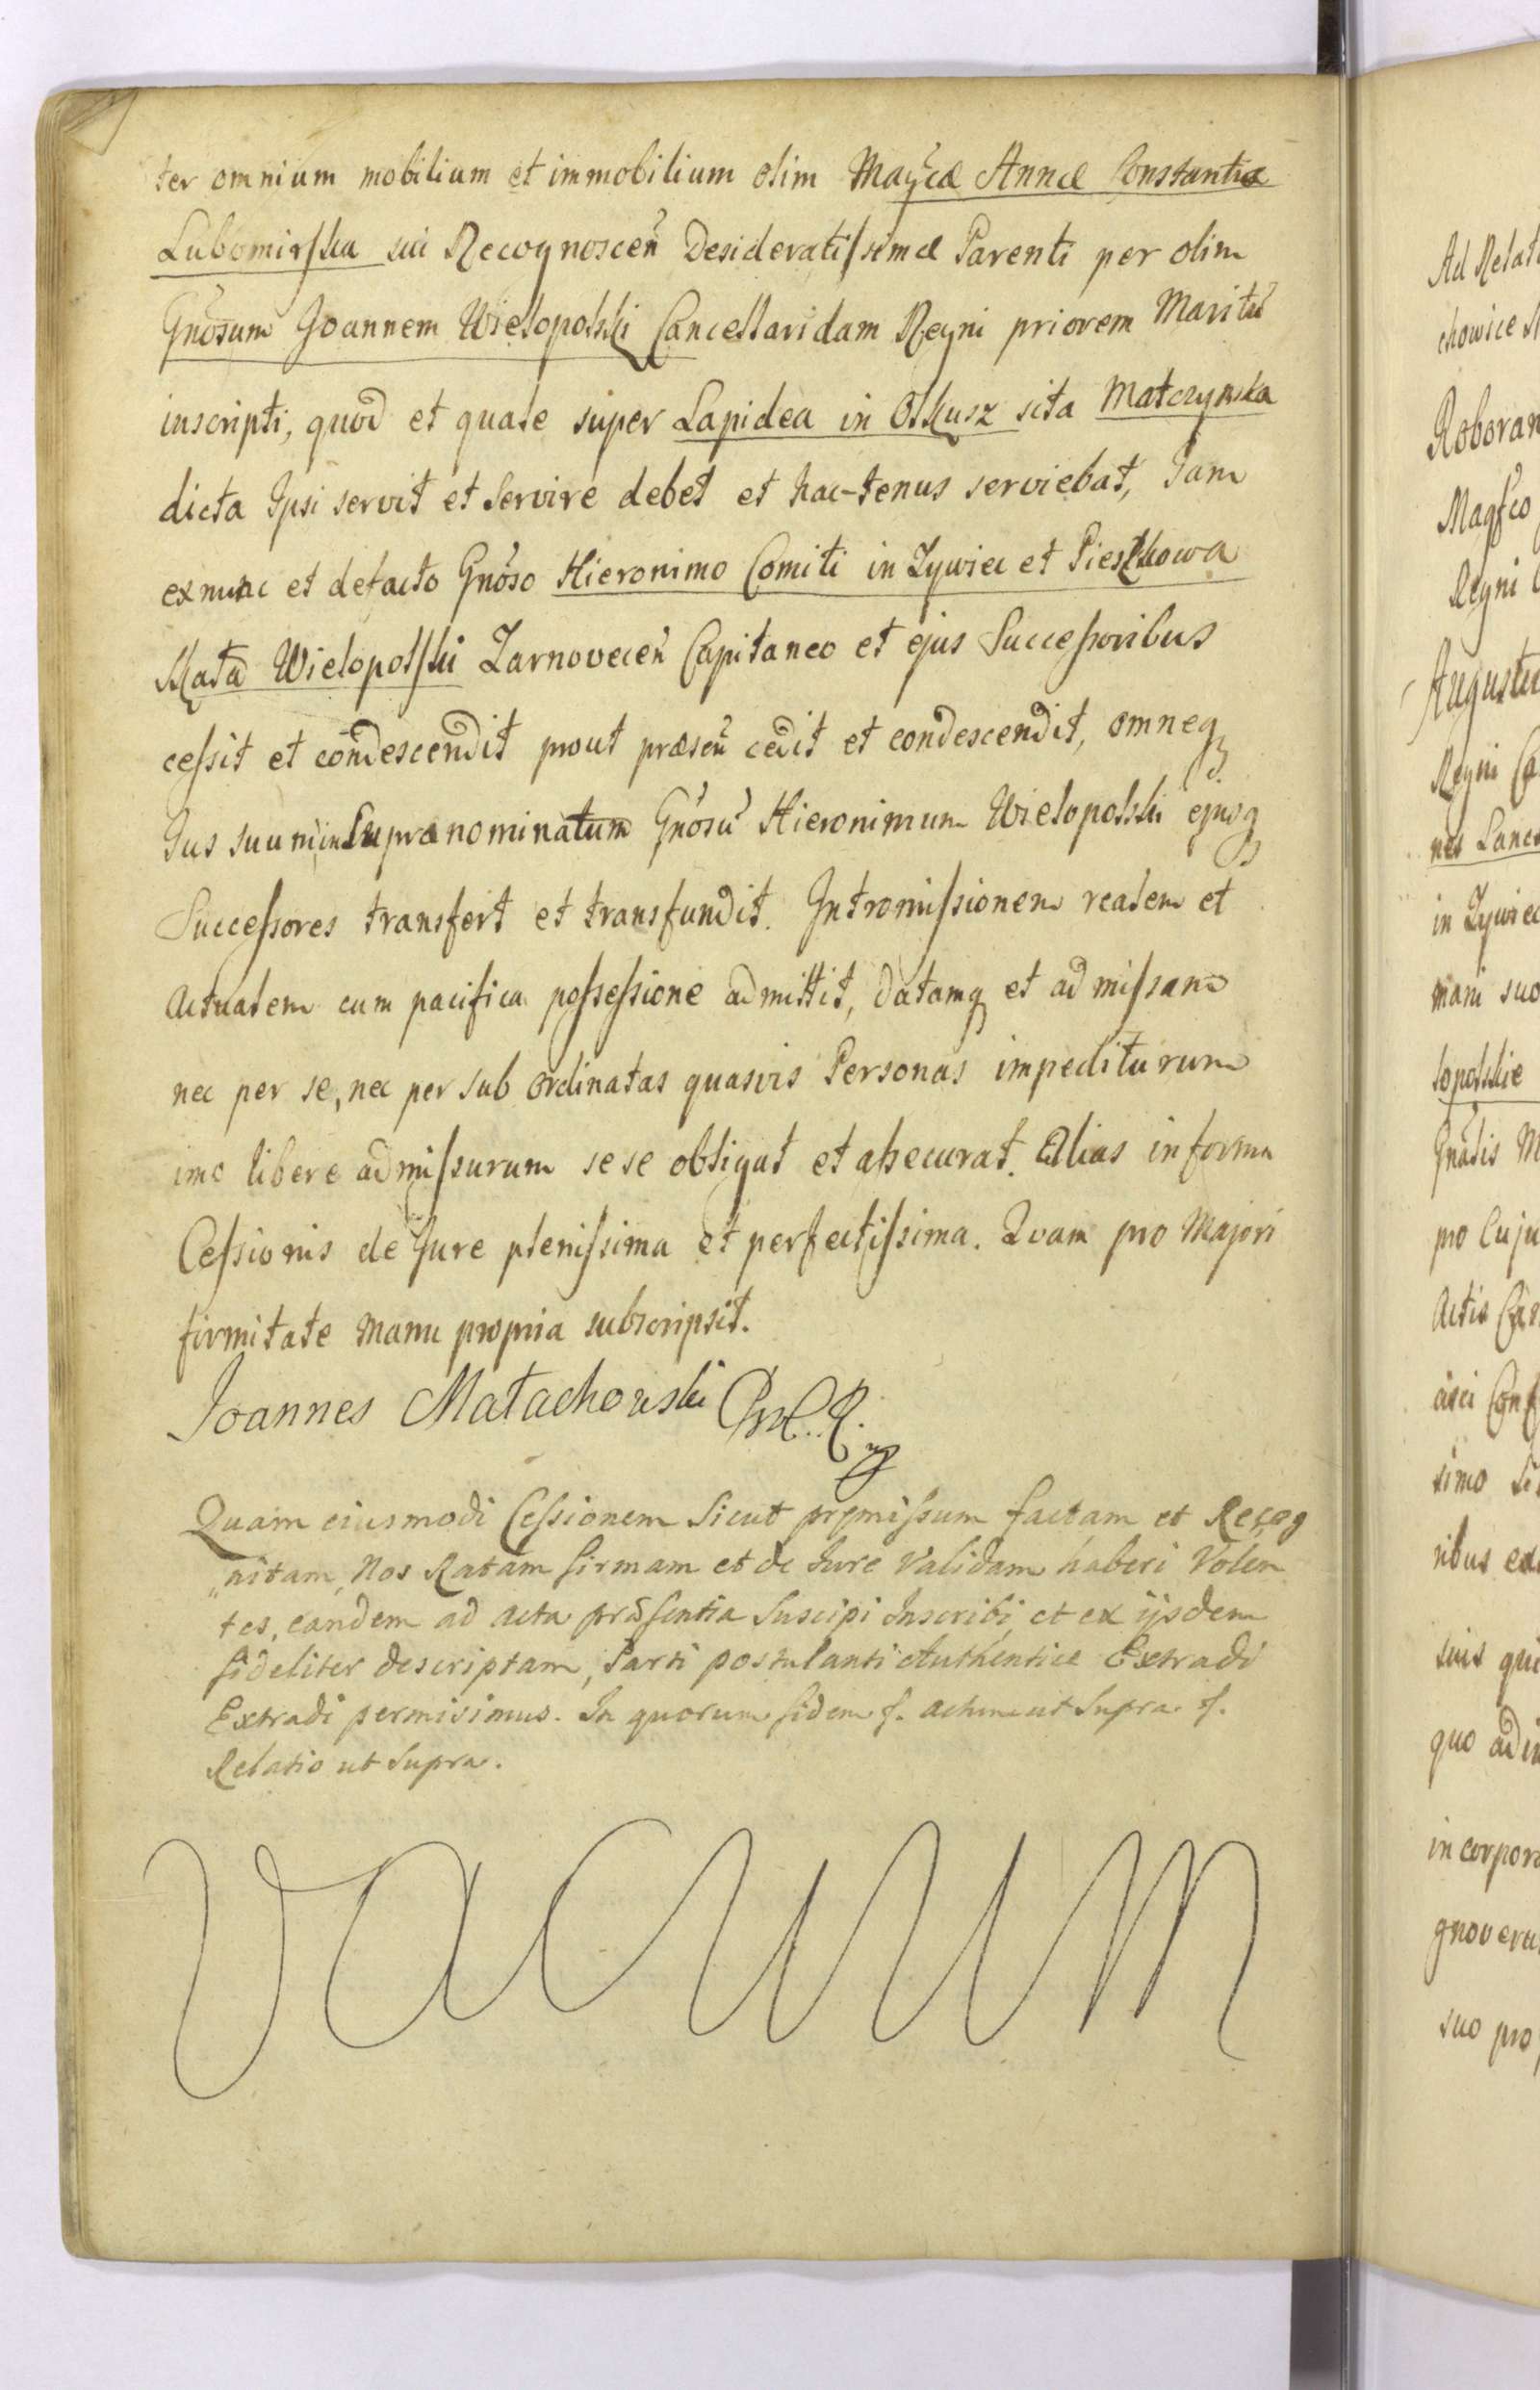 ter omnium mobilium et immobilium olim Magcæ Annæ Constantiæ
Lubomirska sui Recognosceñ Desideratissimæ Parenti per olim
Gnosum Joannem Wielopolski Cancellaridam Regni priorem Maritū
inscripti, quod et quale super Lapidea in Olkusz sita Matczynska
dicta Ipsi servit et servire debet et hac-tenus serviebat, Jam
ex nunc et defacto Gnoso Hieronimo Comiti in Zywiec et Pieskowa
Skała Wielopolski Zarnoveceñ Capitaneo et ejus Successoribus
cessit et condescendit prout præseñ cedit et condescendit, omneq3
Jus suum in supranominatum Gnosū Hieronimum Wielopolski ejusq3
Successores transfert et transfundit. Intromissionem realem et
Actualem cum pacifica possessione admittit, datamq et admissam
nec per se, nec per sub ordinatas quasvis Personas impediturum
imo libere admissurum sese obligat et assecurat. Alias in forma
Cessionis de Jure plenissima et perfectissima. Quam pro Majori
firmitate manu propria subscripsit.
Joannes Małachowski C. R. mp
Quam eiusmodi Cessionem Sicut præmissum factam et Recog
„nitam, Nos Ratam firmam et de Jure Validam haberi Volen
tes, eandem ad acta præsentia Suscipi Inscribi et ex ijsdem
fideliter descriptam, Parti postulanti Authentice Extradi
Extradi permisimus. In quorum fidem f. actum ut Supra f.
Relatio ut Supra.
Vacuum
Ad Relati
chowice
Roboran
Magfco
Regni C
Augustu
Regni Ca
nes Lanc
in Zywiec
mani suo
lopolskie
Gnalis M
pro Cuju
Actis
simo
ribus ex
suis qui
quo ad in
in corpora
gnoveru
suo pro